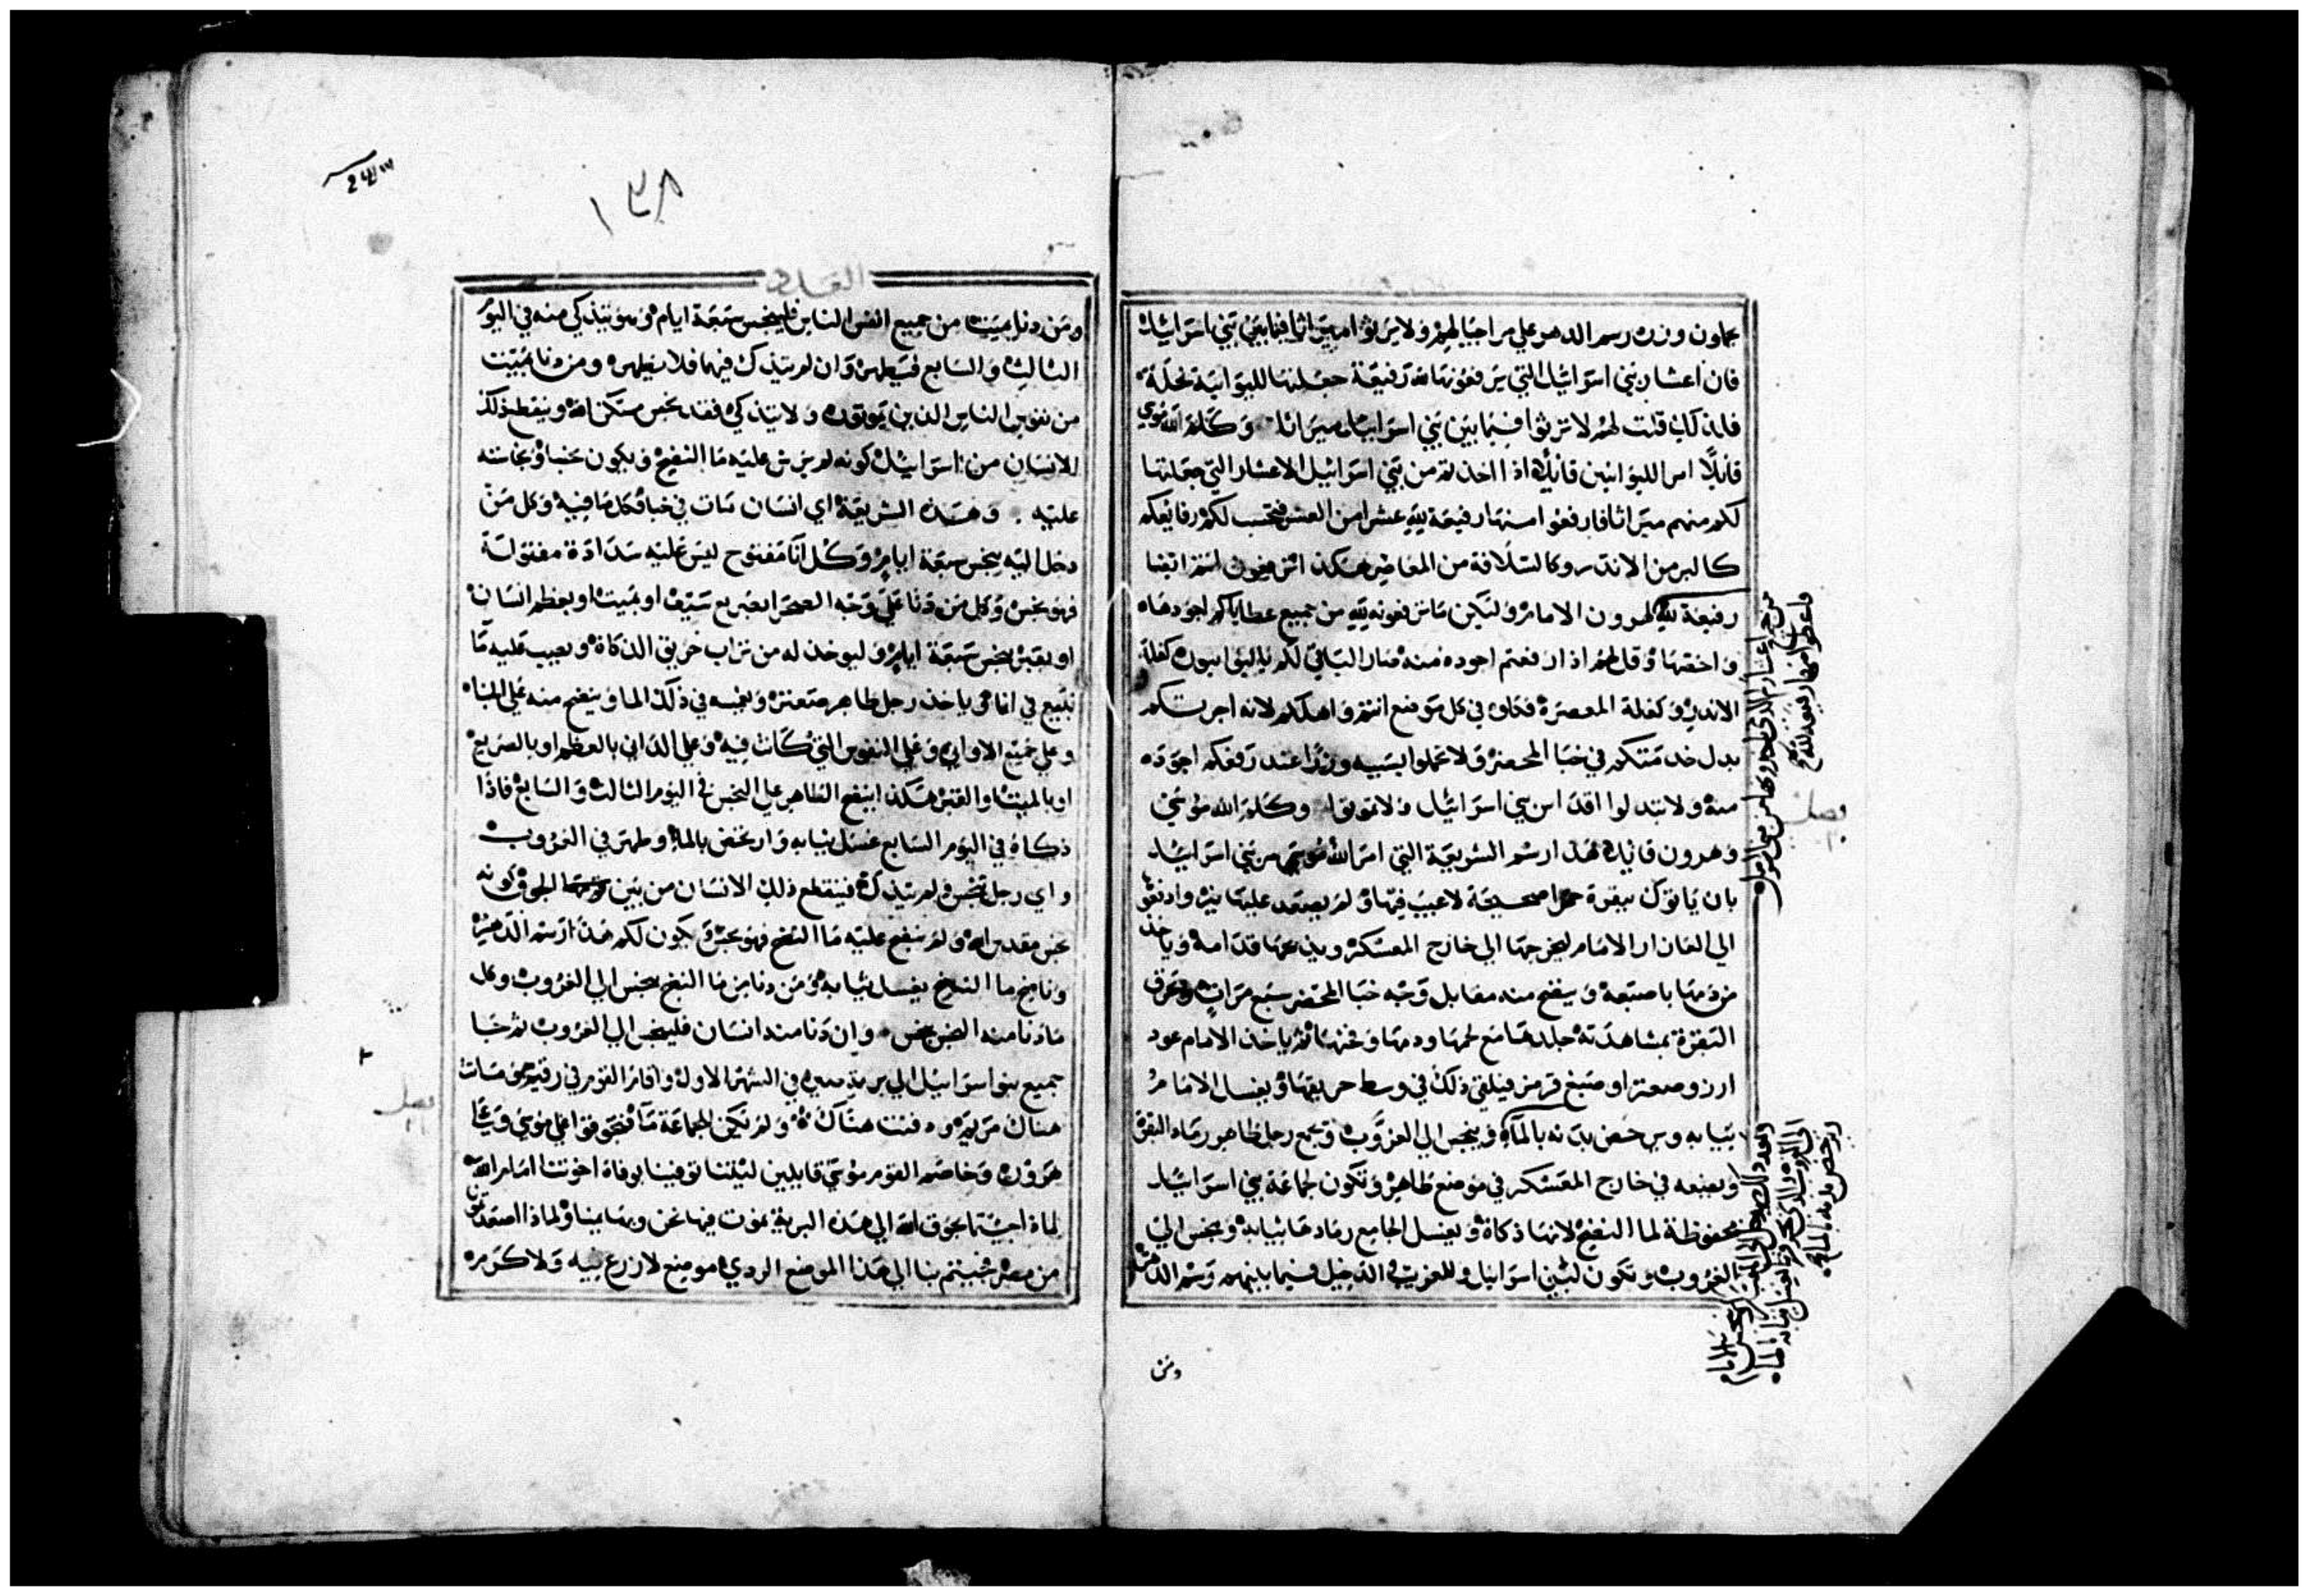 يحملون وزرن رسم الدهر علي مر اجيالهم ولا يرثوا ميراثا فيما بين بني اسرائيل
فان اعشار بني اسرائيل التي يرفعونها لله رفيعة جعلتها لليوانية نحلة
فلذلك قلت لهم لا ترثوا فيما بين بني اسرائيل ميراثا وكلم الله موسي
قائلا امر الليوانيين قائلا اذا اخذتم من بني اسرائيل الاعشار التي جعلتها
لكم منهم ميراثا فارفعوا منها رفيعة لله عشرا من العشر فتحسب لكم رفائعكم
كالبر من الاندر وكالسلافة من المعاصر هكذا ترفعون انتم ايضا
رفيعة لله لهرون الامام وليكن ما ترفعونه لله من جميع عطاياكم اجودها
واخصها وقل لهم اذا رفعتم اجوده منه صار الباقي لكم يا ليوانيون كغلة
الاندر وكغلة المعصرة فكلوه في كل موضع انتم واهلكم لانه اجرتكم
بدل خدمتكم في خبا المحضر ولا تحملوا بسببه وزرا عند رفعكم اجوده
منه ولا تبدلوا اقداس بني اسرائيل ولا تموتوا وكلم الله موسي
وهرون قائلا هذا رسم الشريعة التي امر الله موسي مر بني اسرائيل
بان ياتوك ببقرة حمرا صحيحة لا عيب فيها ولم يصعد عليها نير وادفعها
الي العازار الامام ليخرجها الي خارج المعسكر ويذبحها قدامه وياخذ
من دمها باصبعه وينضح منه مقابل وجه خبا المحضر سبع مرات وتحرق
البقرة بمشاهدته جلدها مع لحمها ودمها وفرثها ثم ياخذ الامام عود
ارز وصعتر او صبغ قرمز فيلقي ذلك في وسط حريقها ويغسل الامام
ثيابه ويرحض بدنه بالماء وينجس الي الغروب ويجمع رجل طاهر رماد البقرة
ويضعه في خارج المعسكر في موضع طاهر وتكون لجماعة بني اسرائيل
محفوظة لما النضح لانها ذكاة ويغسل الجامع رمادها ثيابه وينجس الي
الغروب وتكون لبني اسرائيل وللغريب الدخيل فيما بينهم رسم الدهر
ومن
وصل
١٣٨
العدد
ومن دنا بميت من جميع انفس الناس فلينجس سبعة ايام وهو يتذكي منه في اليوم
الثالث والسابع فيطهر وان لم يتذك فيهما فلا يطهر ومن دنا بميت
من نفوس الناس الذين يموتون ولا يتذكي فقد نجس مسكن الله وينقطع ذلك
الانسان من اسرائيل كونه لم يرش عليه ما النضح ويكون نجسا ونجاسته
عليه وهذه الشريعة اي انسان مات في خبا فكل ما فيه وكل من
دخل اليه ينجس سبعة ايام وكل انا مفتوح ليس عليه سدادة مفتولة
فهو نجس وكل من دنا علي وجه الصحرا بصريع سيف او بميت او بعظم انسان
او بقبر ينجس سبعة ايام وليوخذ له من تراب حريق الذكاة ويصب عليه ما
نبيع في انا ثم ياخذ رجل طاهر صعتر ويغمسه في ذلك الما وينضح منه علي الخبا
وعلي جميع الاواني وعلي النفوس التي كانت فيه وعلي الداني بالعظم او بالصريع
او بالميت او القبر هكذا ينضح الطاهر علي النجس في اليوم الثالث والسابع فاذا
ذكاه في اليوم السابع غسل ثيابه وارتحض بالماء وطهر في الغروب
واي رجل تنجس ولم يتذك فينقطع ذلك الانسان من بين الجوق كونه
نجس مقدس الله ولم ينضح عليه ما النضح فهو نجس ويكون لكم هذا رسم الدهر
وناضح ما النضح يغسل ثيابه ومن دنا من ما النضح ينجس الي الغروب وكل
ما دنا منه النجس ينجس وان دنا منه انسان فلينجس الي الغروب ثم جا
جميع بنو اسرائيل الي برية صين في الشهر الاول واقام القوم في رقيم وماتت
هناك مريم ودفنت هناك ولم يكن للجماعة ما فتجوقوا علي موسي وعلي
هرون وخاصم القوم موسي قايلين ليتنا توفينا بوفاة اخوتنا امام الله
لماذا جيتما بجوق الله الي هذه البرية نموت فيها نحن وبهايمنا ولماذا اصعدتمونا
من مصر فجيتم بنا الي هذا الموضع الردي موضع لا زرع فيه ولا كرمه
وصل